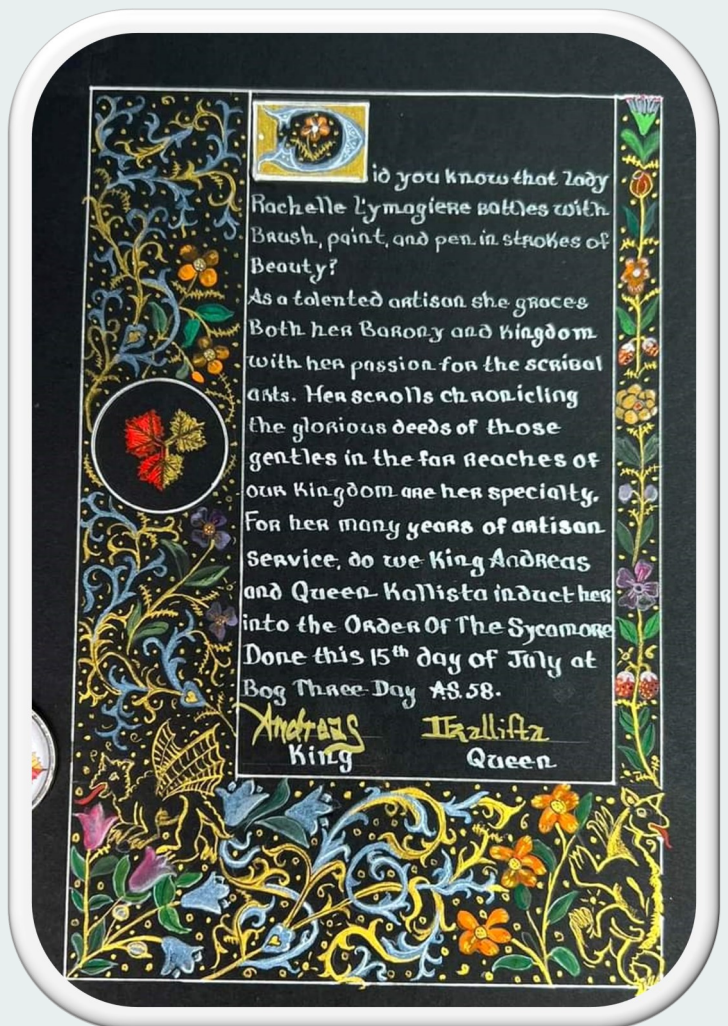 Did you know that Lady
Rachelle L'ymagiere battles with
Brush, paint, and pen in strokes of
Beauty?
As a talented artisan she graces
Both her Barony and Kingdom
with her passion for the scribal
arts. Her scrolls chronicling
the glorious deeds of those
gentles in the far Reaches of
our Kingdom are her specialty.
For her many years of artisan
service, do we King Andreas
and Queen Kallista induct her
into the Order Of The Sycamore
Done this 15th day of July at
Bog Three Day AS.58.
Andreas Kallista
King Queen